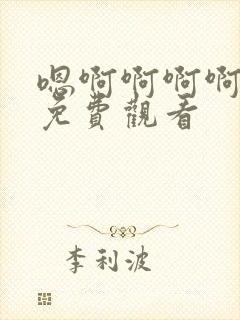 嗯啊啊啊啊
免費觀看
李利波